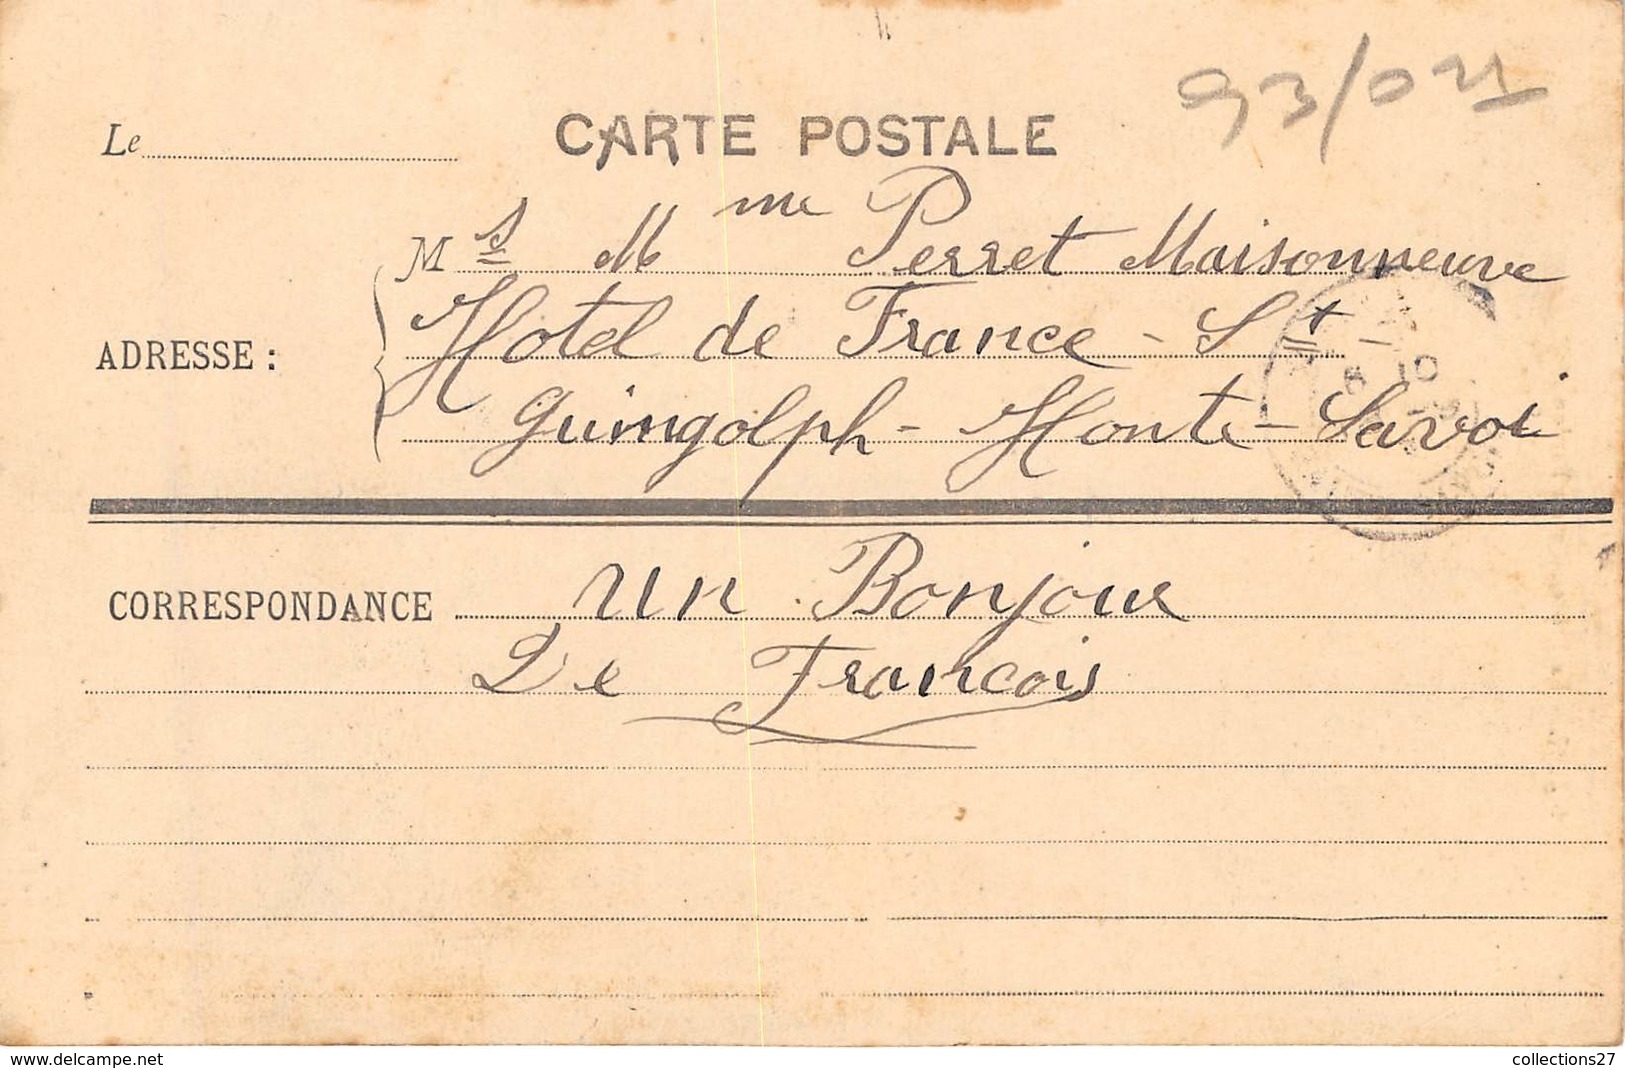 93/021
Le
CARTE POSTALE
Ms Mme Perret Maisonneuve
ADRESSE :
Hotel de France - St
Guingolph - Honte - Savoi
CORRESPONDANCE Un Bonjour
De Francois
www.delcampe.net
collections27